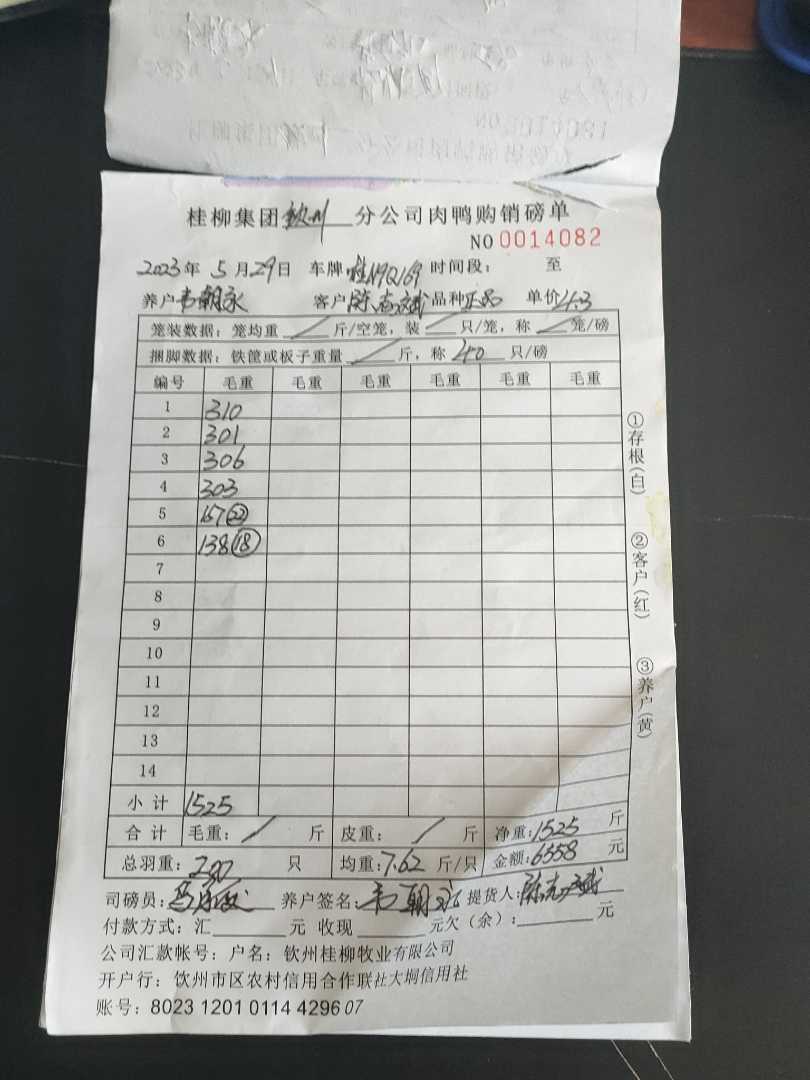 桂柳集团钦州分公司肉鸭购销磅单
NO 0014082
2023年5月29日 车牌桂N9Q169 时间段: 至
养户韦朝永 客户陈志斌 品种正品 单价4.3
笼装数据: 笼均重 / 斤/空笼, 装 / 只/笼, 称 / 笼/磅
捆脚数据: 铁筐或板子重量 / 斤, 称 40 只/磅
编号 毛重 毛重 毛重 毛重 毛重 毛重
1 310
2 301
3 306
4 303
5 167 (22)
6 138 (18)
7
8
9
10
11
12
13
14
小计 1525
合计 毛重: / 斤 皮重: / 斤 净重:1525 斤
总羽重: 200 只 均重:7.62 斤/只 金额:6558 元
司磅员: 养户签名:韦朝永 提货人:陈志斌
付款方式: 汇 元 收现 元欠(余): 元
公司汇款帐号: 户名: 钦州桂柳牧业有限公司
开户行: 钦州市区农村信用合作联社大垌信用社
账号: 8023 1201 0114 4296 07
①存根(白)
②客户(红)
③养户(黄)